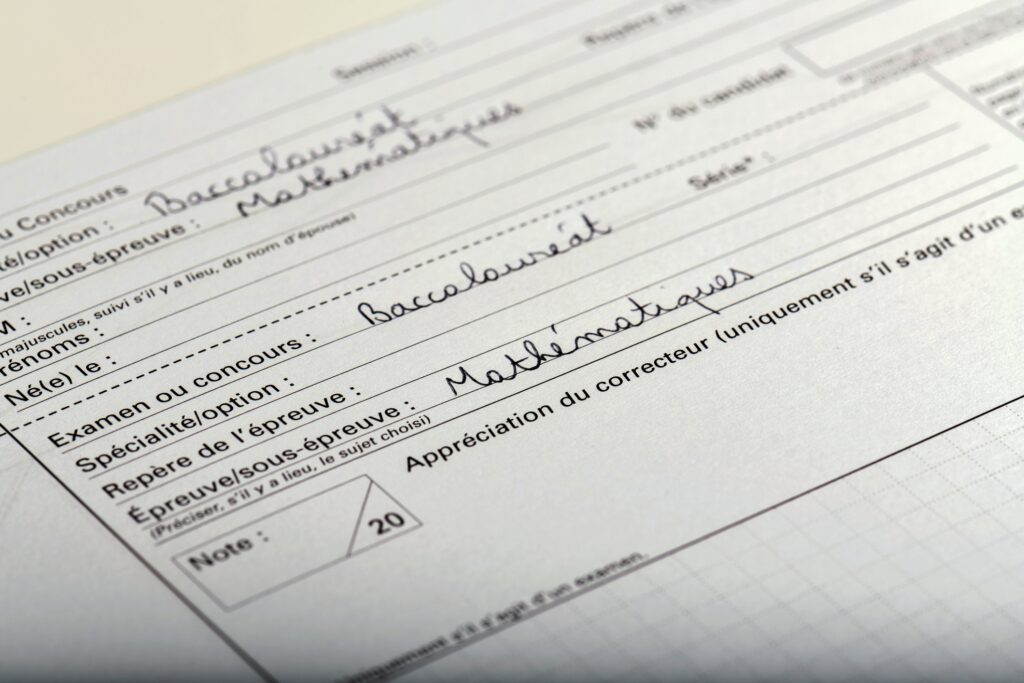 Session :
u Concours
té/option : Baccalauréat
ve/sous-épreuve : Mathématiques
N° du candidat
M :
majuscules, suivi s'il y a lieu, du nom d'épouse)
rénoms :
Né(e) le :
Examen ou concours : Baccalauréat Série* :
Spécialité/option :
Repère de l'épreuve :
Épreuve/sous-épreuve : Mathématiques
(Préciser, s'il y a lieu, le sujet choisi)
Note : 20
Appréciation du correcteur (uniquement s'il s'agit d'un e
niquement s'il s'agit d'un examen.